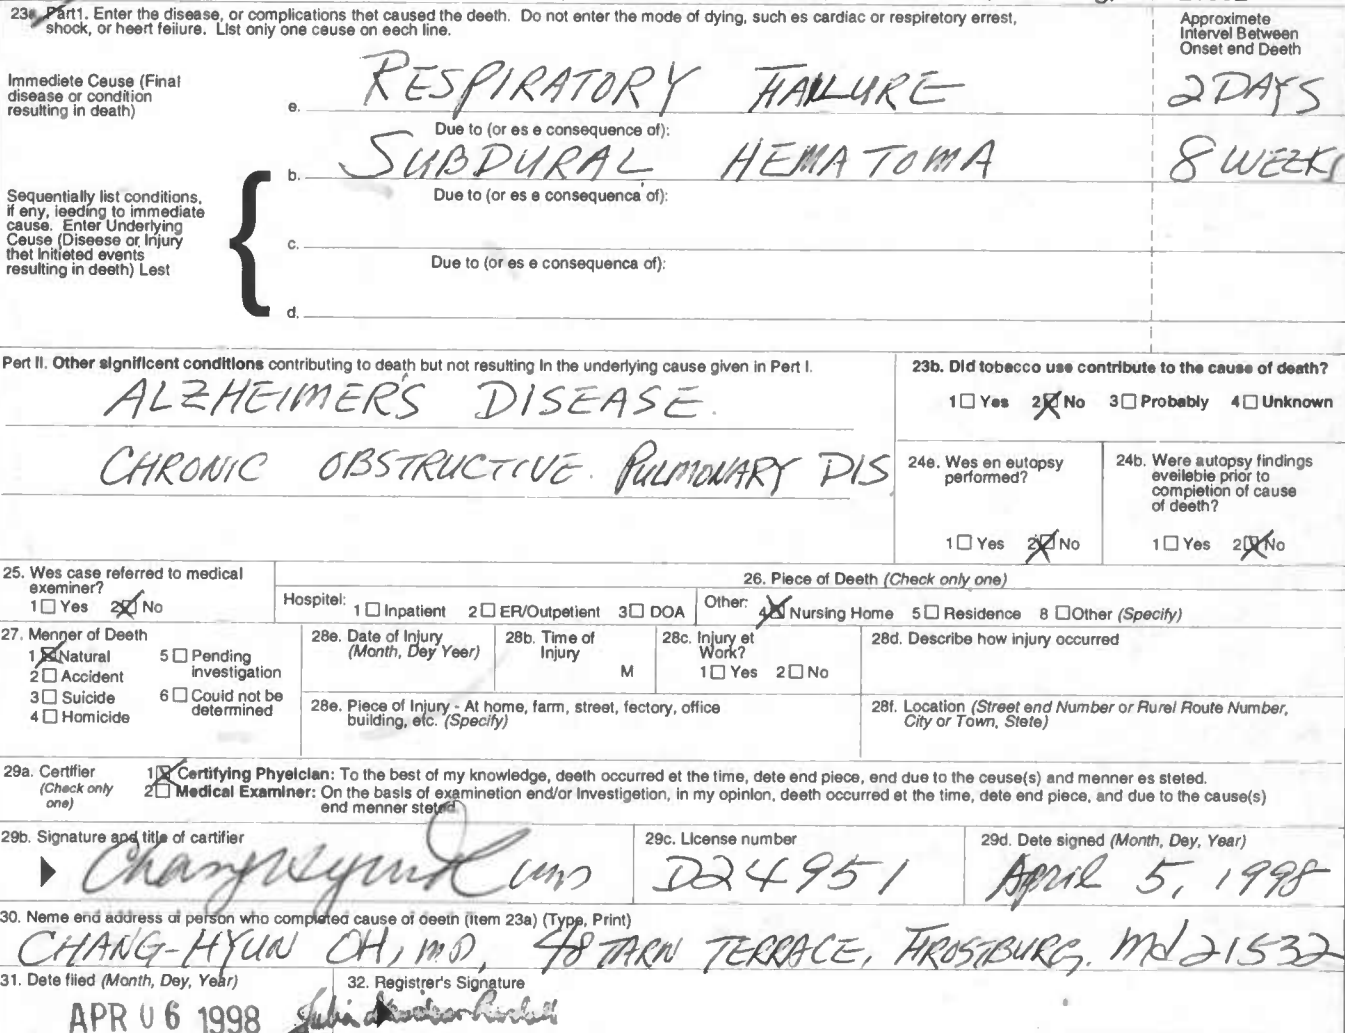 23a. Part1. Enter the disease, or complications thet caused the deeth. Do not enter the mode of dying, such es cardiac or respiretory errest,
shock, or heert feilure. List only one ceuse on eech line.
Approximete
Intervel Between
Onset end Deeth
Immediete Ceuse (Final
disease or condition
resulting in death)
e. RESPIRATORY FAILURE 2 DAYS
Due to (or es e consequence of):
b. SUBDURAL HEMATOMA 8 WEEKS
Due to (or es e consequence of):
Sequentially list conditions,
if eny, leeding to immediate
cause. Enter Underlying
Ceuse (Diseese or Injury
thet initieted events
resulting in deeth) Lest
c.
Due to (or es e consequenca of):
d.
Pert II. Other significent conditions contributing to death but not resulting In the underlying cause given in Pert I.
ALZHEIMER'S DISEASE.
CHRONIC OBSTRUCTIVE. PULMONARY DIS
23b. Did tobecco use contribute to the cause of death?
1 Yes 2 No 3 Probably 4 Unknown
24e. Wes en eutopsy
performed?
1 Yes 2 No
24b. Were autopsy findings
eveileble prior to
completion of cause
of deeth?
1 Yes 2 No
25. Wes case referred to medical
exeminer?
1 Yes 2 No
26. Piece of Deeth (Check only one)
Hospitel: 1 Inpatient 2 ER/Outpetient 3 DOA Other: 4 Nursing Home 5 Residence 8 Other (Specify)
27. Menner of Deeth
1 Natural
2 Accident
3 Suicide
4 Homicide
5 Pending
investigation
6 Could not be
determined
28e. Date of Injury
(Month, Dey Yeer)
28b. Time of
Injury
M
28c. Injury et
Work?
1 Yes 2 No
28d. Describe how injury occurred
28e. Piece of Injury - At home, farm, street, fectory, office
building, etc. (Specify)
28f. Locetion (Street end Number or Rurel Route Number,
City or Town, Stete)
29a. Certifier
(Check only
one)
1 Certifying Phyelclan: To the best of my knowledge, deeth occurred et the time, dete end piece, end due to the ceuse(s) and menner es steted.
2 Medical Examiner: On the basis of exeminetion end/or Investigetion, in my opinion, deeth occurred et the time, dete end piece, and due to the cause(s)
end menner steted
29b. Signature and title of cartifier
Chang Hyun Oh MD
29c. License number
D24951
29d. Dete signed (Month, Dey, Year)
April 5, 1998
30. Neme end address of person who completed cause of deeth (item 23a) (Type, Print)
CHANG-HYUN OH, MD, 48 TARN TERRACE, FROSTBURG, Md 21532
31. Dete filed (Month, Dey, Year)
APR 06 1998
32. Registrer's Signature